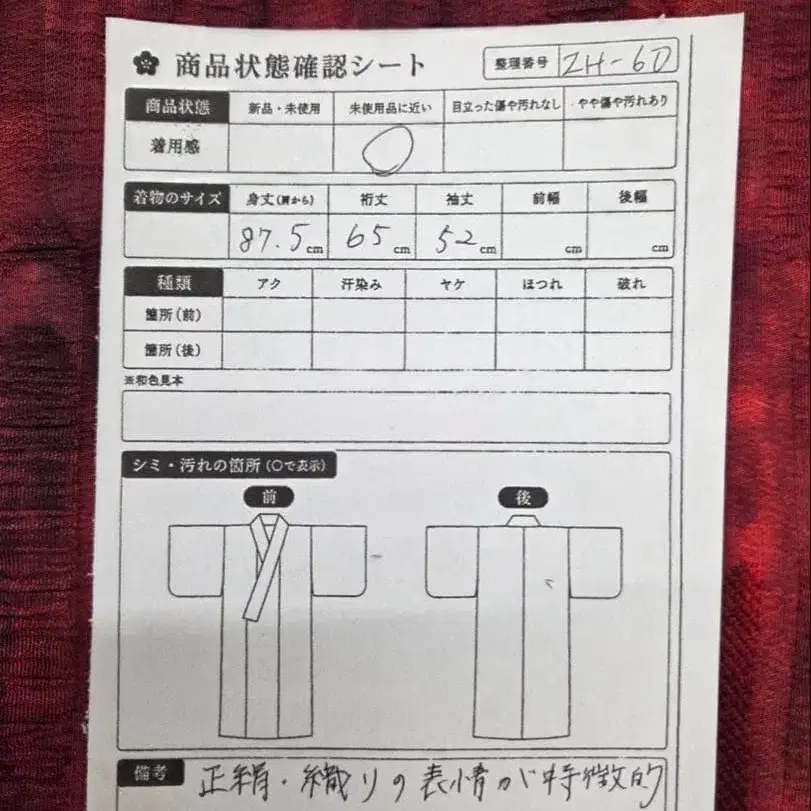 商品状態確認シート
整理番号 ZH-60
商品状態 新品・未使用 未使用品に近い 目立った傷や汚れなし やや傷や汚れあり
着用感
着物のサイズ 身丈(肩から) 裄丈 袖丈 前幅 後幅
87.5cm 65cm 52cm cm cm
種類 アク 汗染み ヤケ ほつれ 破れ
箇所(前)
箇所(後)
※和色見本
シミ・汚れの箇所(○で表示)
前 後
備考 正絹・織りの表情が特徴的